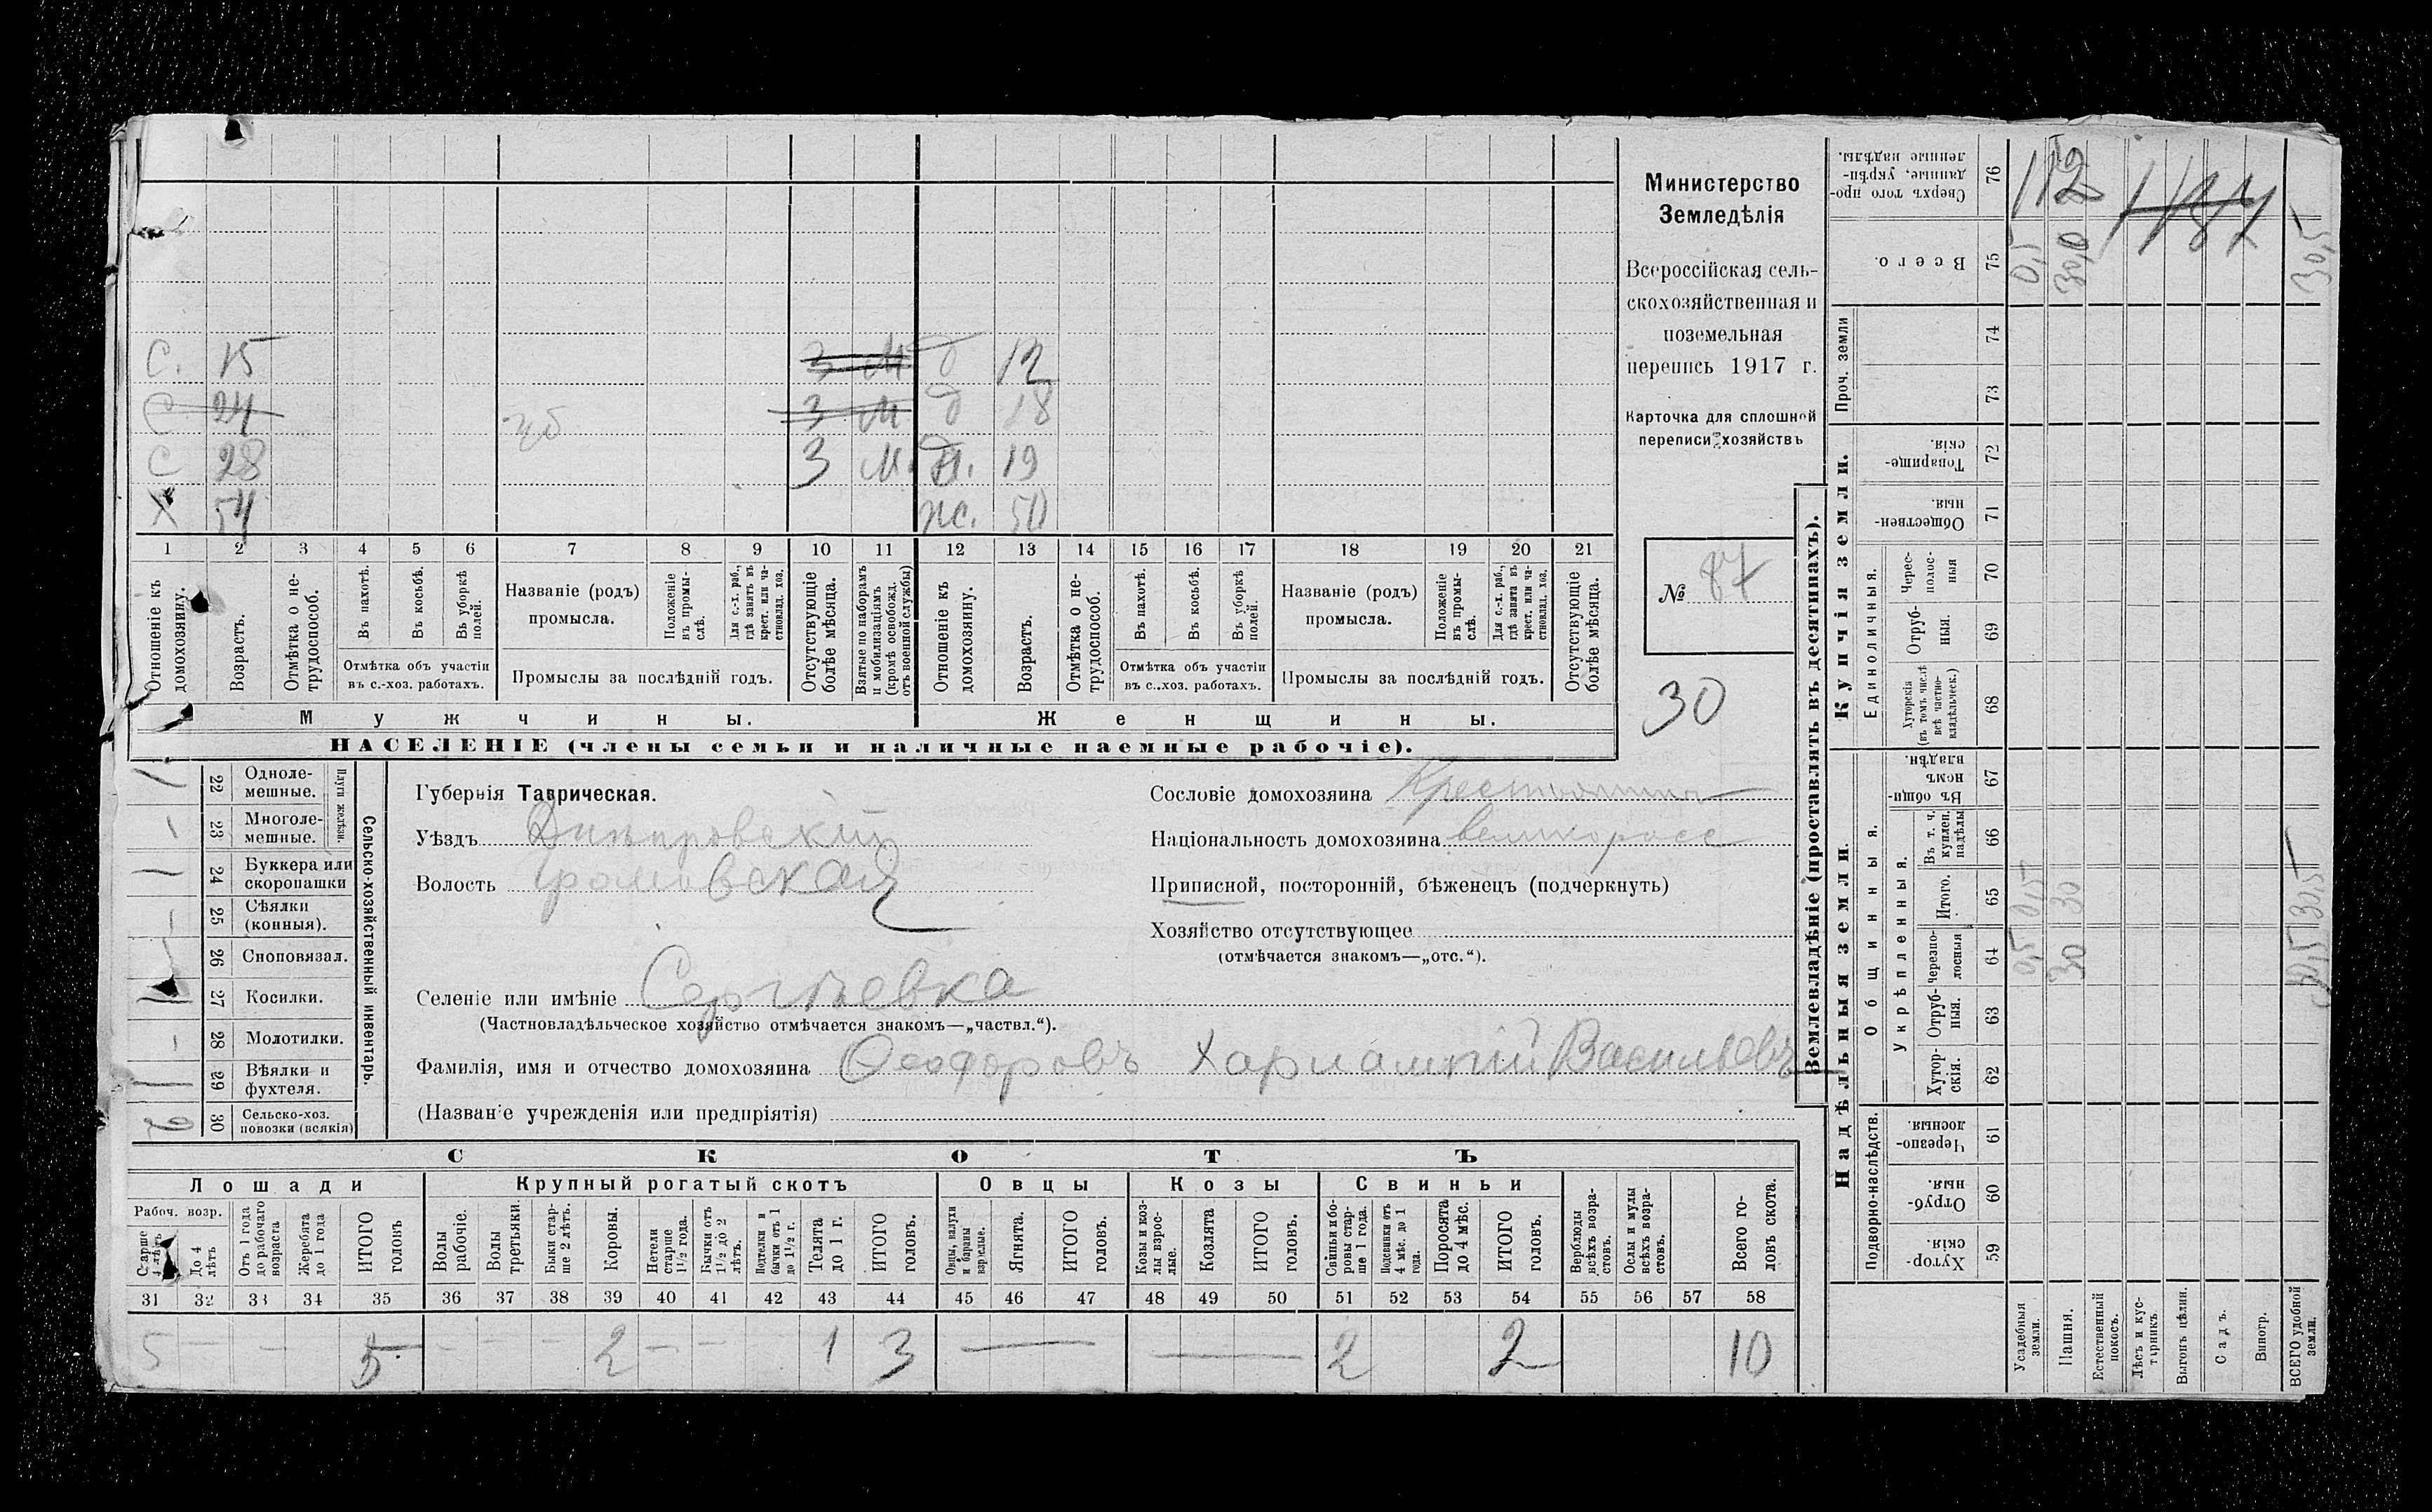 С. 15 3 М д 12
С 24 3 М д 18
С 28 3 М. д. 19
Х 54 ж. 50
1 2 3 4 5 6 7 8 9 10 11 12 13 14 15 16 17 18 19 20 21
Отношеніе къ домохозяину.
Возрастъ.
Отмѣтка о не-трудоспособ.
Въ пахотѣ.
Въ косьбѣ.
Въ уборкѣ полей.
Отмѣтка объ участіи
въ с.-хоз. работахъ.
Названіе (родъ)
промысла.
Положеніе въ промы-слѣ.
Для с.-х. раб., гдѣ занятъ въ крест. или ча-стновлад. хоз.
Промыслы за послѣдній годъ.
Отсутствующіе болѣе мѣсяца.
Взятые по наборамъ и мобилизаціямъ (кромѣ освобожд. отъ военной службы)
Отношеніе къ домохозяину.
Возрастъ.
Отмѣтка о не-трудоспособ.
Въ пахотѣ.
Въ косьбѣ.
Въ уборкѣ полей.
Отмѣтка объ участіи
въ с.-хоз. работахъ.
Названіе (родъ)
промысла.
Положеніе въ промы-слѣ.
Для с.-х. раб., гдѣ занята въ крест. или ча-стновлад. хоз.
Промыслы за послѣдній годъ.
Отсутствующіе болѣе мѣсяца.
Мужчины. Женщины.
НАСЕЛЕНІЕ (члены семьи и наличные наемные рабочіе).
Министерство
Земледѣлія
Всероссійская сель-
скохозяйственная и
поземельная
перепись 1917 г.
Карточка для сплошной
переписи хозяйствъ
№ 87
30
Сельско-хозяйственный инвентарь.
Плуги желѣзн.
22 Одноле-
мешные.
23 Многоле-
мешные.
24 Буккера или
скоропашки
25 Сѣялки
(конныя).
26 Сноповязал.
27 Косилки.
28 Молотилки.
29 Вѣялки и
фухтеля.
30 Сельско-хоз.
повозки (всякія)
Губернія Таврическая.
Уѣздъ Днѣпровскій
Волость Громовская
Селеніе или имѣніе Сергѣевка
(Частновладѣльческое хозяйство отмѣчается знакомъ—„частвл.“).
Фамилія, имя и отчество домохозяина Ѳеофоровъ Харлампій Васильевъ
(Названіе учрежденія или предпріятія)
Сословіе домохозяина Крестьянинъ
Національность домохозяина великоросс
Приписной, посторонній, бѣженецъ (подчеркнуть)
Хозяйство отсутствующее
(отмѣчается знакомъ—„отс.“).
СКОТЪ
Лошади Крупный рогатый скотъ Овцы Козы Свиньи
Рабоч. возр.
Старше 4 лѣтъ
До 4 лѣтъ
Отъ 1 года до рабочаго возраста
Жеребята до 1 года
ИТОГО головъ
Волы рабочіе.
Волы третьяки.
Быки стар-ше 2 лѣтъ.
Коровы.
Нетели старше 1½ года.
Бычки отъ 1½ до 2 лѣтъ.
Подтелки и бычки отъ 1 до 1½ г.
Телята до 1 г.
ИТОГО головъ.
Овцы, валухи и бараны взрослые.
Ягнята.
ИТОГО головъ.
Козы и коз-лы взрос-лые.
Козлята
ИТОГО головъ.
Свиньи и бо-ровы стар-ше 1 года.
Подсвинки отъ 4 мѣс. до 1 года.
Поросята до 4 мѣс.
ИТОГО головъ.
Верблюды всѣхъ возра-стовъ.
Ослы и мулы всѣхъ возра-стовъ.
Всего го-ловъ скота.
31 32 33 34 35 36 37 38 39 40 41 42 43 44 45 46 47 48 49 50 51 52 53 54 55 56 57 58
5 — — 5 - - - 2 - - 1 3 — — 2 2 10
Землевладѣніе (проставлять въ десятинахъ).
Надѣльныя земли.
Купчія земли.
Проч. земли
Подворно-наслѣдств.
Общинныя.
Укрѣпленныя.
Единоличныя.
76 Сверхъ того про-данные, укрѣп-ленные надѣлы.
75 Всего.
74
73
72 Товарище-скія.
71 Обществен-ныя.
70 Черес-полос-ныя
69 Отруб-ныя.
68 Хуторскія (въ томъ числѣ всѣ частно-владѣльческ.)
67 Въ общи-номъ владѣн.
66 Въ т. ч. куплен. надѣлы
65 Итого.
64 Черезпо-лосныя
63 Отруб-ныя.
62 Хутор-скія.
61 Черезпо-лосныя.
60 Отруб-ныя.
59 Хутор-скія.
Усадебныя земли.
Пашня.
Естественный покосъ.
Лѣсъ и кус-тарникъ.
Выгонъ цѣлин.
Садъ.
Виногр.
ВСЕГО удобной земли.
112
1187
0,5 30,0 30,5
0,5 30 30,5
0,5 30 30,5